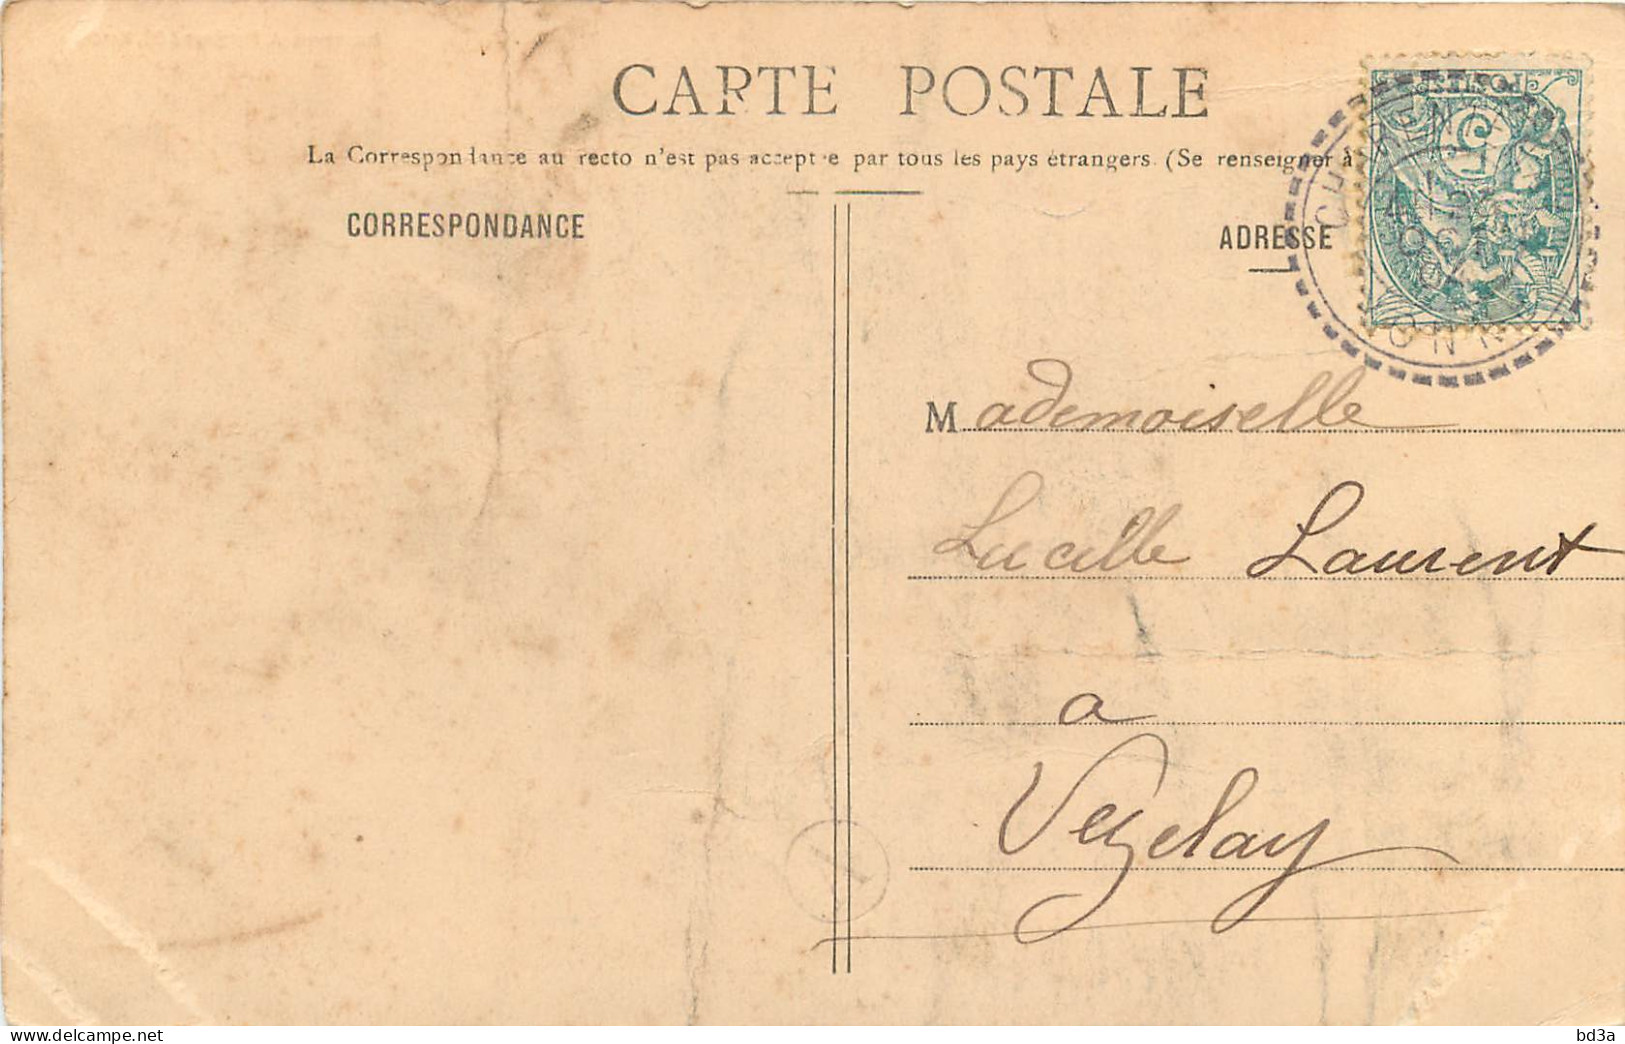 CARTE POSTALE
La Correspondance au recto n'est pas acceptée par tous les pays étrangers. (Se renseigner à
CORRESPONDANCE
ADRESSE
POSTES
5
Mademoiselle
Lucille Laurent
a
Vezelay
1
bd3a